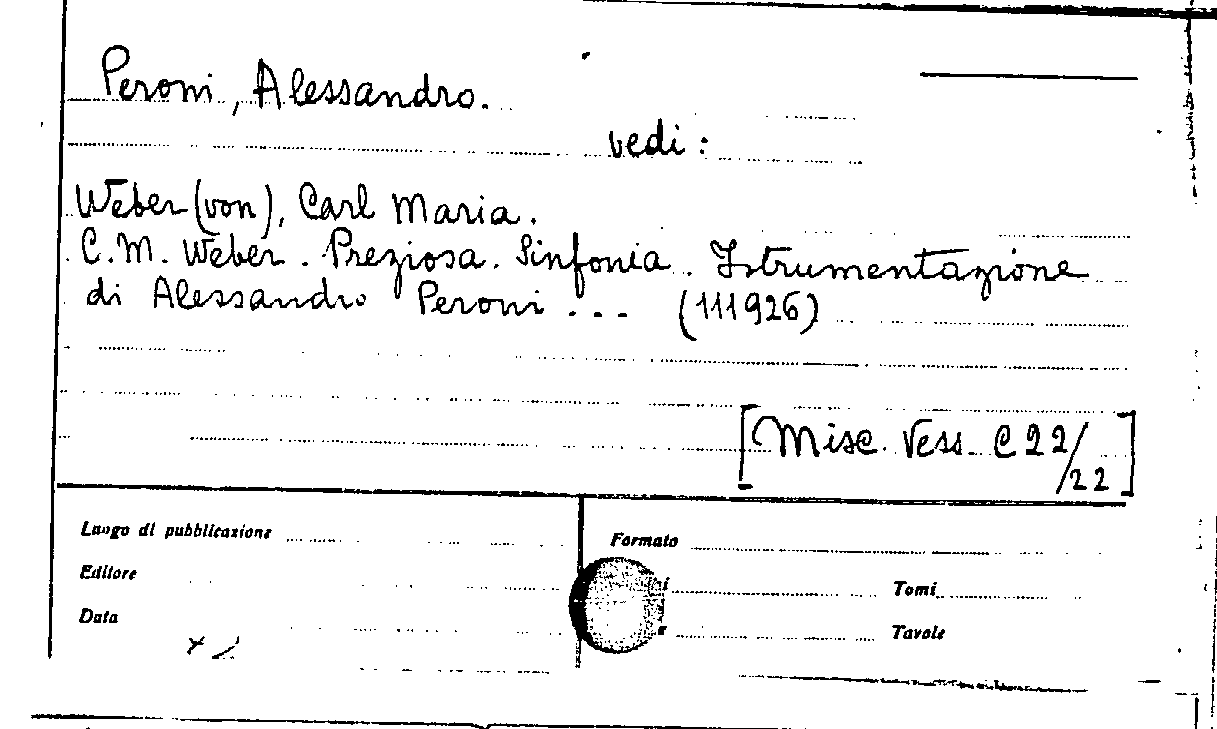 Peroni, Alessandro.
vedi:
Weber (von), Carl Maria.
C.M. Weber. Preziosa. Sinfonia. Istrumentazione
di Alessandro Peroni ... (111926)
[Misc. Vess. C 22/22]
Luogo di pubblicazione
Formato
Editore
Tomi
Data
Tavole